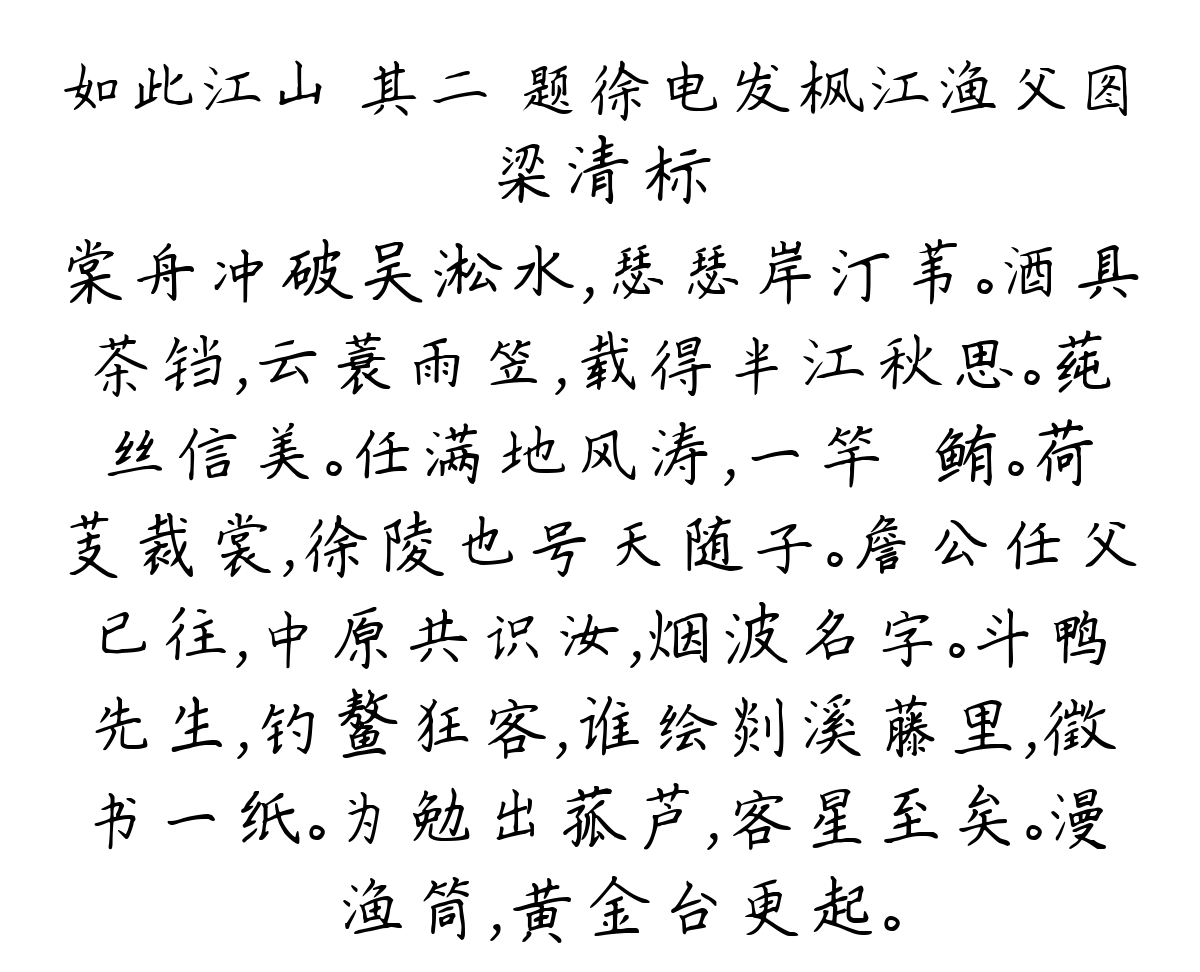 如此江山 其二 题徐电发枫江渔父图
梁清标
棠舟冲破吴淞水,瑟瑟岸汀苇。酒具
茶铛,云蓑雨笠,载得半江秋思。莼
丝信美。任满地风涛,一竿 鲔。荷
芰裁裳,徐陵也号天随子。詹公任父
已往,中原共识汝,烟波名字。斗鸭
先生,钓鳌狂客,谁绘剡溪藤里,徵
书一纸。为勉出菰芦,客星至矣。漫
渔筒,黄金台更起。